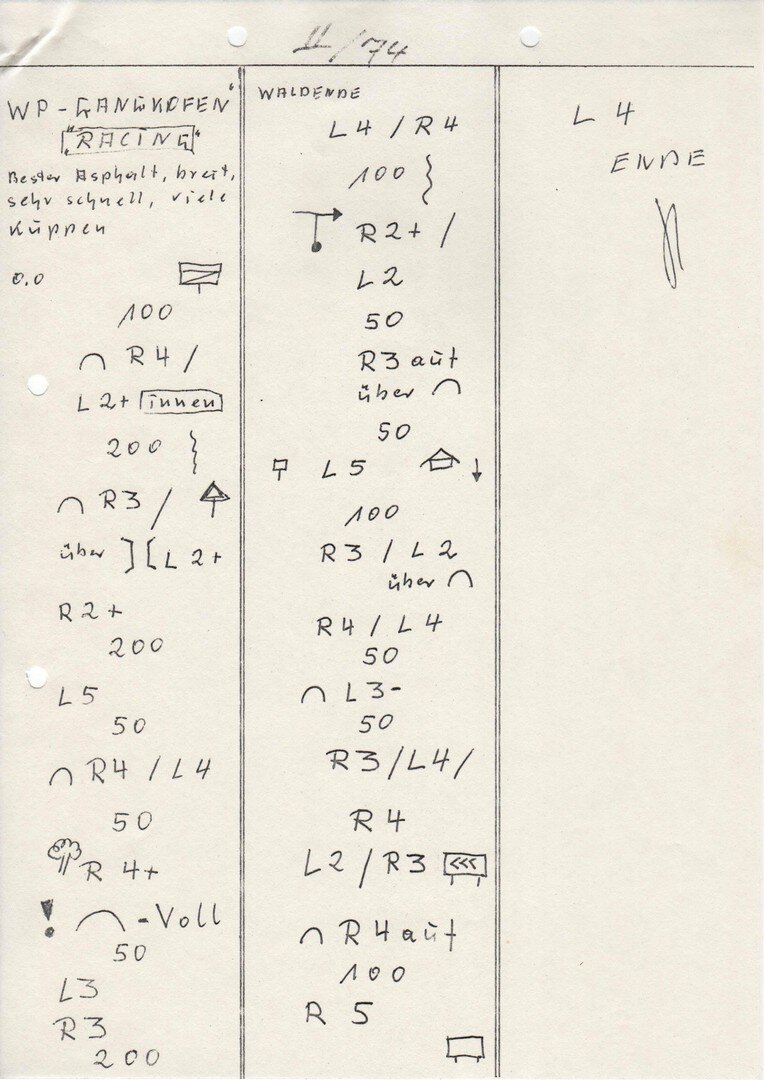 II/74
WP-GANGKOFEN"
"RACING"
Bester Asphalt, breit,
sehr schnell, viele
Kuppen
0.0
100
R4/
L2+ innen
200
R3/
über ][ L2+
R2+
200
L5
50
R4/L4
50
R 4+
! -Voll
50
L3
R3
200
WALDENDE
L4/R4
100
R2+/
L2
50
R3 auf
über
50
L5 ↓
100
R3/L2
über
R4/L4
50
L3-
50
R3/L4/
R4
L2/R3 <<<
R4 auf
100
R 5
L 4
ENDE